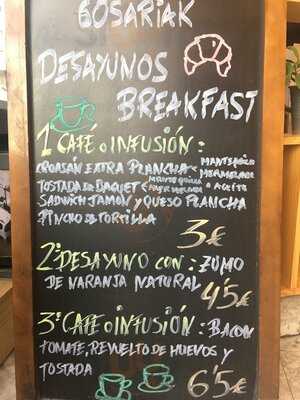 GOSARIAK
DESAYUNOS
BREAKFAST
1º CAFÉ o INFUSIÓN:
CROASÁN EXTRA PLANCHA MANTEQUILLA
MERMELADA
TOSTADA DE BAGUET o ACEITE
SADWICH JAMÓN y QUESO PLANCHA
PINCHO DE TORTILLA
3€
2º DESAYUNO CON: ZUMO
DE NARANJA NATURAL 4'5€
3º CAFÉ o INFUSIÓN: BACON
TOMATE, REVUELTO DE HUEVOS y
TOSTADA 6'5€